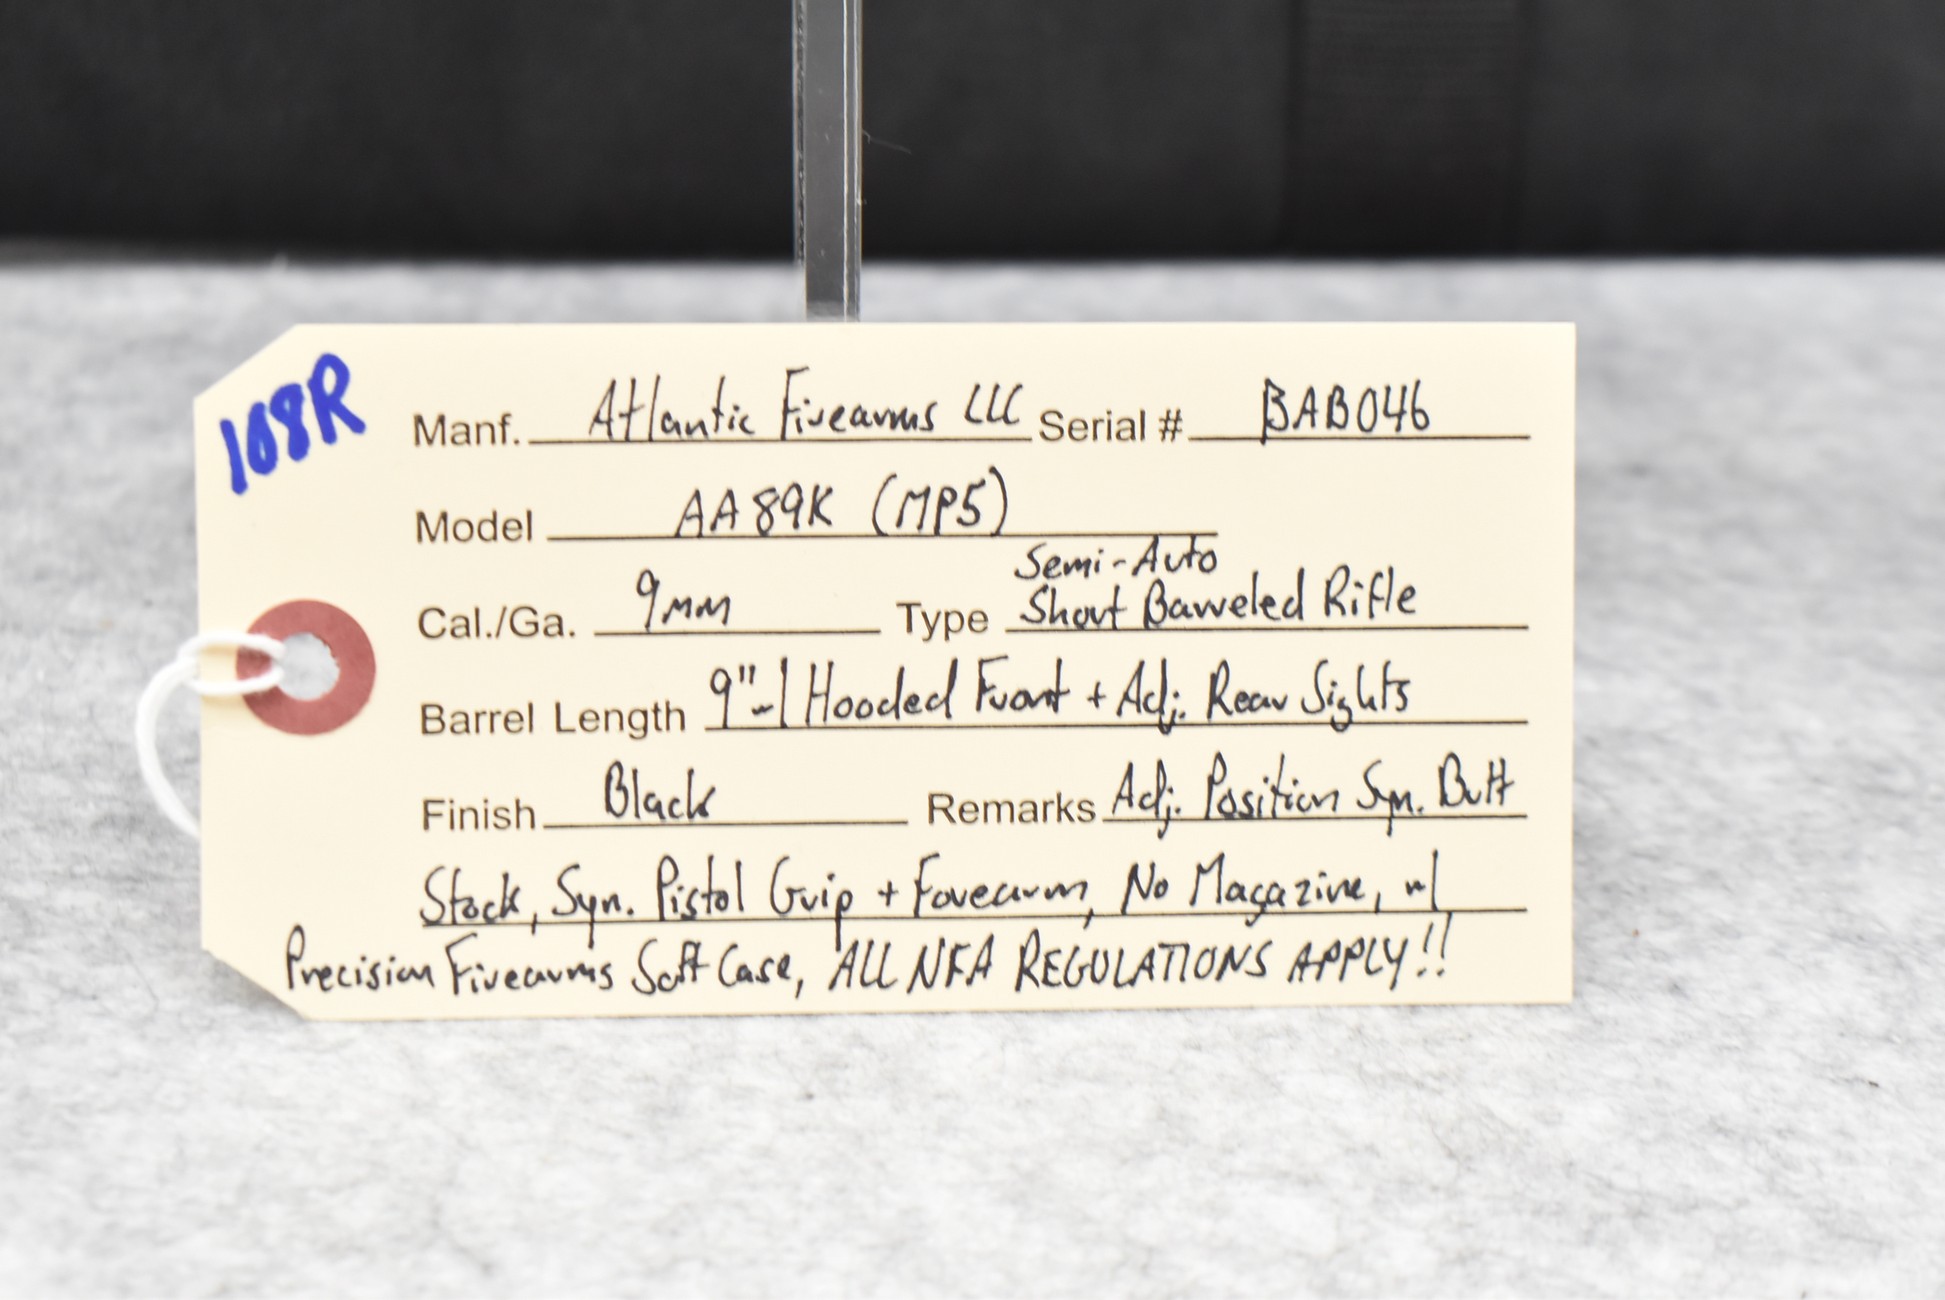 108R
Manf. Atlantic Firearms LLC Serial # BAB046
Model AA89K (MP5)
Semi-Auto
Cal./Ga. 9mm Type Short Barreled Rifle
Barrel Length 9" w/ Hooded Front + Adj. Rear Sights
Finish Black Remarks Adj. Position Syn. Butt
Stock, Syn. Pistol Grip + Forearm, No Magazine, w/
Precision Firearms Soft Case, ALL NFA REGULATIONS APPLY!!